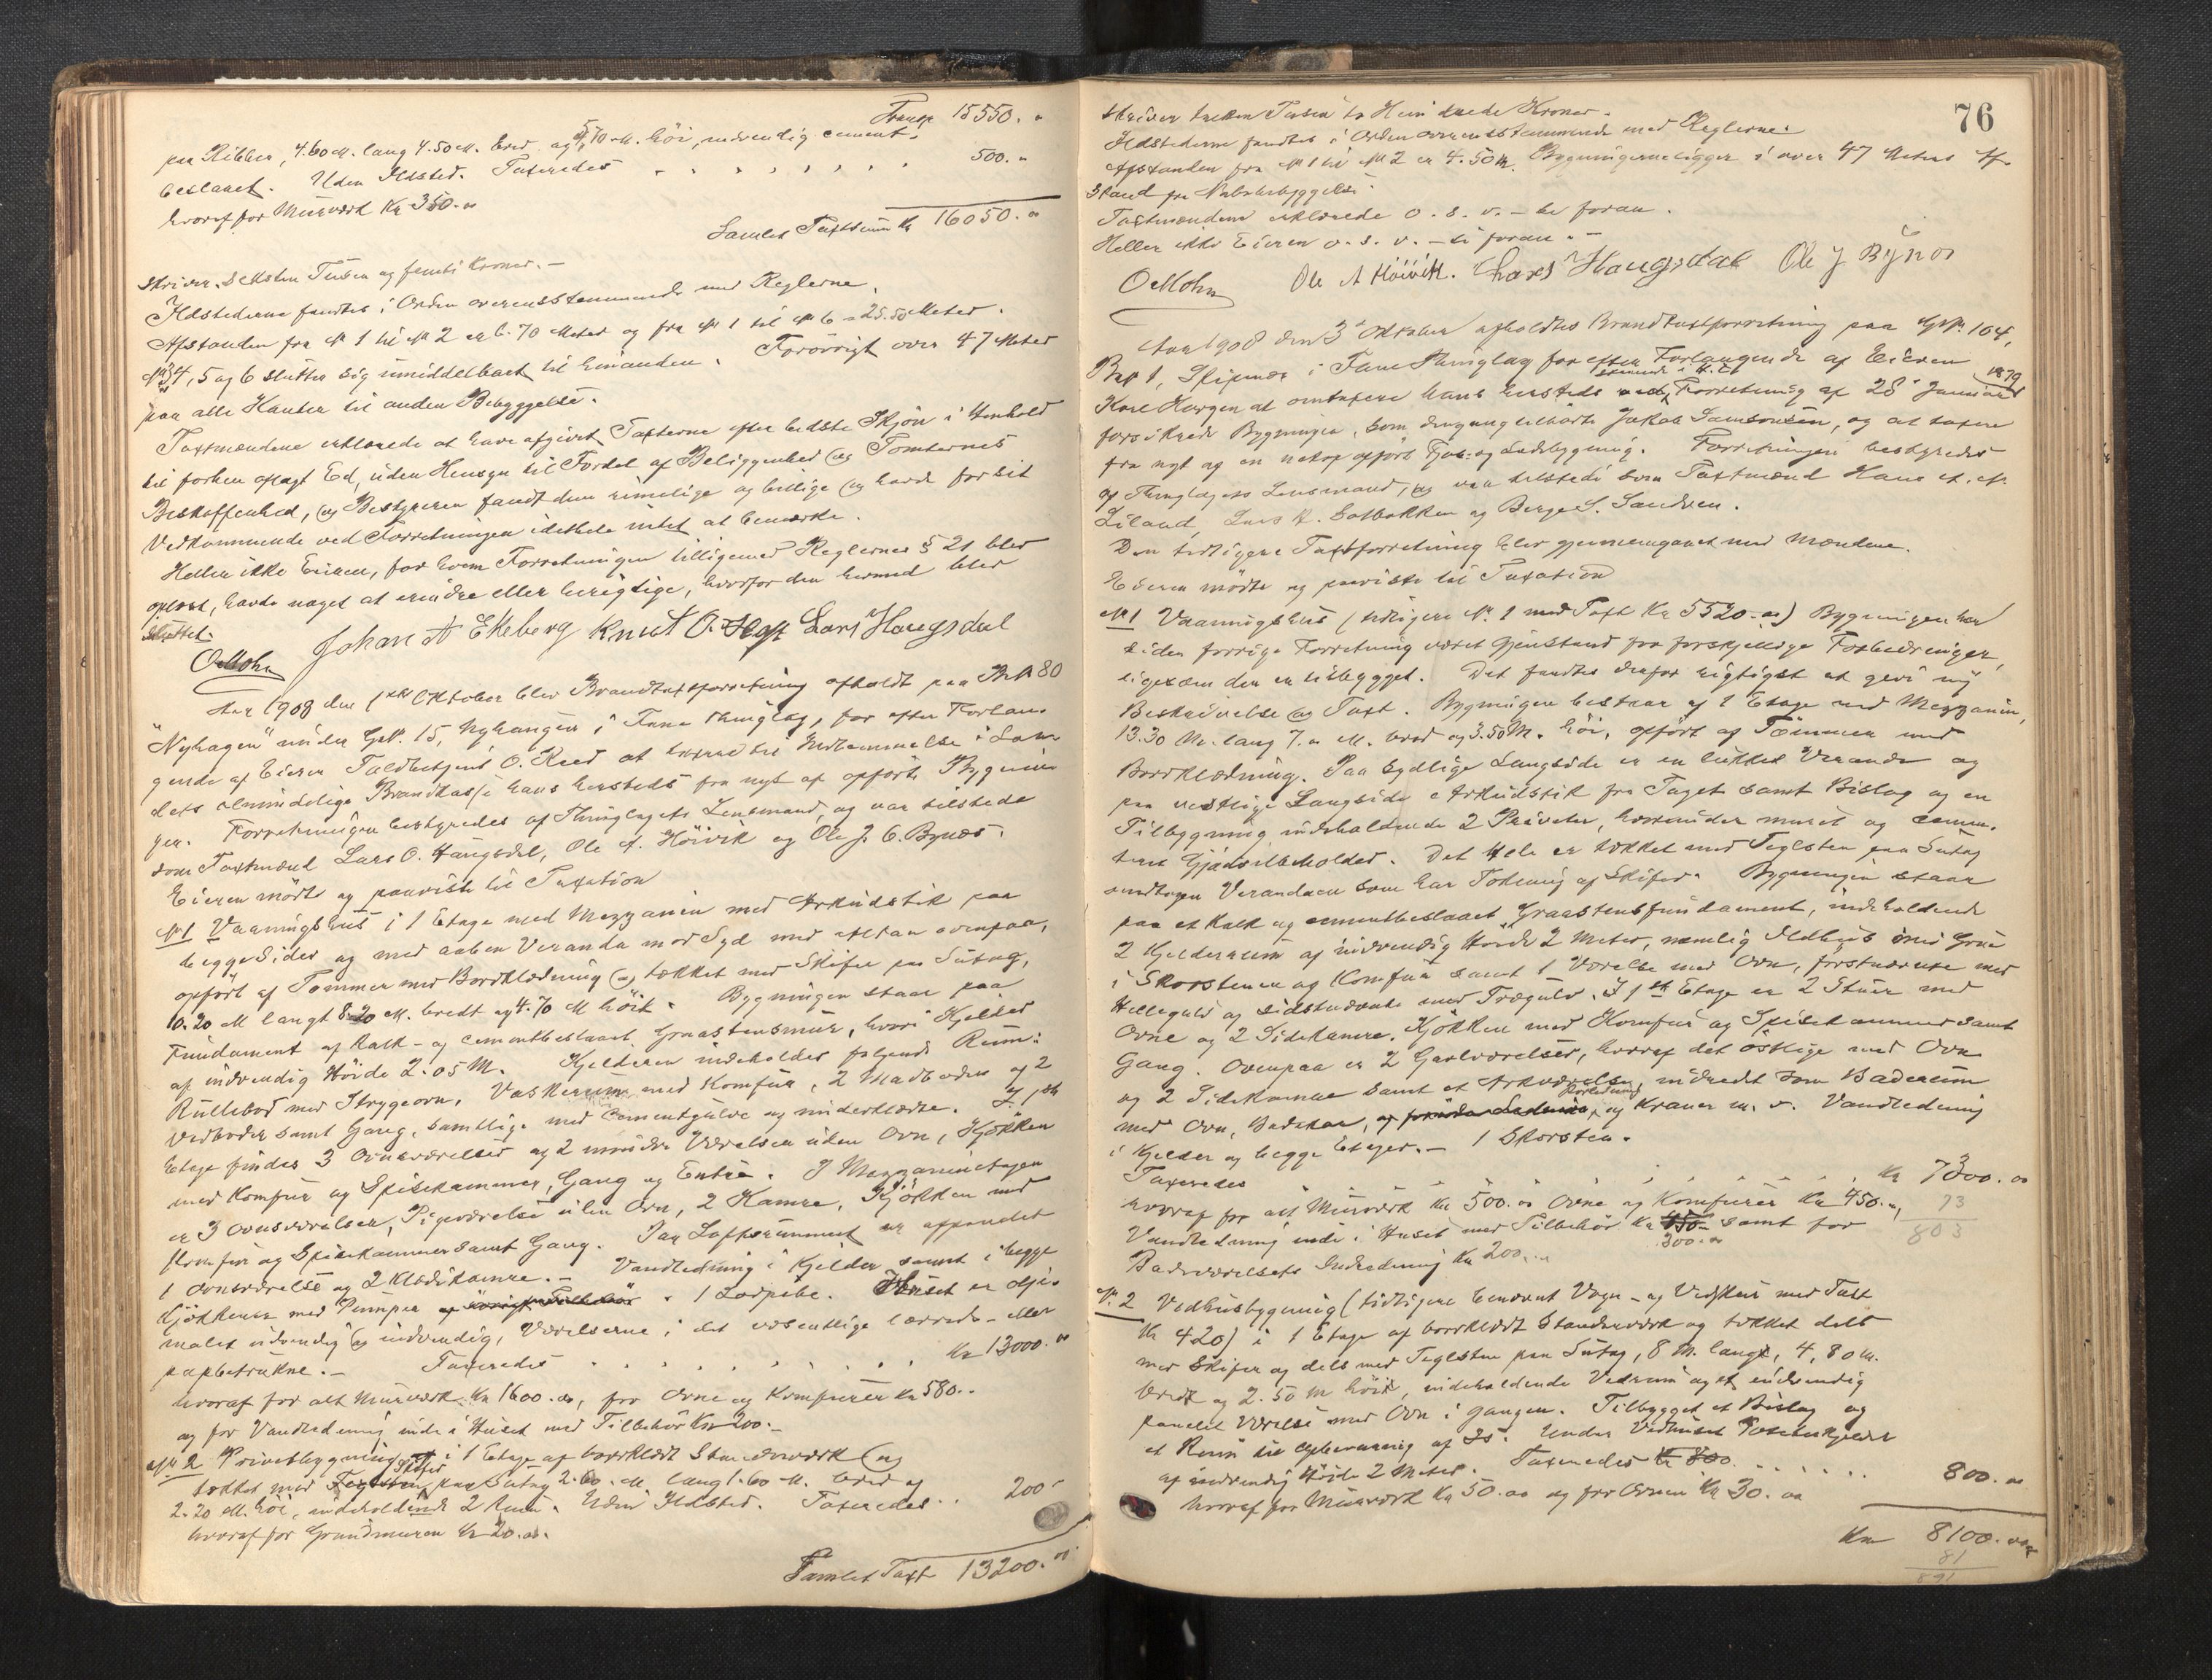 Transp 15550. "
paa Ribber, 4.60 M. lang 4.50 M. bred og 5,70 M. höi, udvendig cement-
beslaaet. Uden Ildsted. Taxeredes 500. "
hvoraf for Murværk Kr 350.00
Samlet Taxtsum Kr 16050.00
skriver Seksten Tusen og femti Kroner.—
Ildstederne fandtes i Orden overensstemmende med Reglerne.
Afstanden fra № 1 til № 2 er 6.70 Meter og fra № 1 til № 6 = 25.50 Meter.
№ 3, 4, 5 og 6 slutter sig umiddelbart til hinanden. Forövrigt over 47 Meter
paa alle Kanter til anden Bebyggelse.
Taxtmændene erklærede at have afgivet Taxterne efter bedste Skjön i Henhold
til forhen aflagt Ed, uden Hensyn til Fordel af Beliggenhed og Tomternes
Beskaffenhed, og Bestyreren fandt dem rimelige og billige og havde for sit
Vedkommende ved Forretningen idethele intet at bemærke.
Heller ikke Eieren, for hvem Forretningen tilligemed Reglernes § 21 blev
oplæst, havde noget at erindre eller berigtige, hvorfor den hermed blev
sluttet.
Johan A Ekeberg Knut O. Lars Haugsdal
OMohn
Aar 1908 den 1ste Oktober blev Brandtaxtforretning afholdt paa Br№ 80
"Nyhagen" under G№. 15, Nyhaugen i Fane Thinglag, for efter Forlan-
gende af Eieren Toldbetjent O. Kied at taxere til Indlemmelse i Lan-
dets almindelige Brandkasse hans hersteds fra nyt af opförte Bygnin-
ger. Forretningen bestyredes af Thinglagets Lensmand, og var tilstede
som Taxtmænd Lars O. Haugsdal, Ole A. Höivik og Ole J. C. Bynæs.
Eieren mödte og paaviste til Taxation
№ 1 Vaaningshus i 1 Etage med Mezzanin med Arkudstik paa
begge Sider og med aaben Veranda mod Syd med altan ovenpaa,
opfört af Tömmer med Bordklædning og tækket med Skifer paa Sutag,
10.20 M langt 8.20 M. bredt og 4.70 M höit. Bygningen staar paa
Fundament af Kalk- og cementbeslaaet Graastensmur, hvori Kjelder
af indvendig Höide 2.05 M. Kjelderen indeholder fölgende Rum:
Rullebod med Strygeovn, Vaskerum med Komfur, 2 Madboder og 2
Vedboder samt Gang, samtlige med Cementgulve og underklædte. I 1ste
Etage findes 3 Ovnsværelser og 2 mindre Værelser uden Ovn, Kjökken
med Komfur og Spisekammer, Gang og Entré. I Mezzaninetagen
er 3 ovnsværelser, Pigeværelse uden Ovn, 2 Kamre, Kjökken med
Komfur og Spisekammer samt Gang. Paa Loftsrummet er afpanelet
1 ovnsværelse og 2 Klædekamre.— Vandledning i Kjelder samt i begge
Kjökkener med Pumper og övrigt Tilbehör. 1 Lodpibe. Huset er olje-
malet udvendig og indvendig, Værelserne i det væsentlige lærreds- eller
papbetrukne.— Taxeredes Kr 13000.00
hvoraf for alt Murværk Kr 1600.00, for Ovne og Komfurer Kr 580..
og for Vandledning inde i Huset med Tilbehör Kr 200.—
№ 2 Privetbygning i 1 Etage af bordklædt Stenderværk og
tækket med Teglsten Skifer paa Sutag 2.60 M. lang 1.60 M. bred og
2.20 M. höi, indeholdende 2 Rum. Uden Ildsted. Taxeredes.. 200-
hvoraf for Grundmuren Kr 20.00.
Samlet Taxt 13200.00
76
skriver tretten Tusen to Hundrede Kroner.
Ildstederne fandtes i Orden overensstemmende med Reglerne.
Afstanden fra № 1 til № 2 er 4.50 M. Bygningerne ligger i over 47 Meters Af-
stand fra Nabobebyggelse.
Taxtmændene erklærede o. s. v. — se foran.
Heller ikke Eieren o. s. v. — se foran.—
OMohn Ole A Höivik. Lars Haugsdal Ole J Bynes
Aar 1908 den 3die Oktober afholdtes Brandtaxtforretning paa G№. 104,
Br№ 1, i Fane Thinglag for efter Forlangende af Eieren
Karl Horgen at omtaxere hans hersteds ved Forretning af 28de Januar 1879
forsikrede Bygninger, som dengang tilhörte Jakob Samsonsen, og at taxere
fra nyt og en netop opfört Fjös- og Ladebygning. Forretningen bestyredes
af Thinglagets Lensmand, og var tilstede som Taxtmænd Hans
Liland, Lars H. Solbakken og Berge S. Sandven.
Den tidligere Taxtforretning blev gjennemgaaet med Mændene.
Eieren mödte og paaviste til Taxation
№ 1 Vaaningshus (tidligere № 1 med Taxt Kr 5520.00) Bygningen har
siden forrige Forretning været Gjenstand for forskjellige Forbedringer,
ligesom den er tilbygget. Det fandtes derfor rigtigst at give ny
Beskrivelse og Taxt. Bygningen bestaar af 1 Etage med Mezzanin,
13.30 M. lang 7.00 M. bred og 3.50 M. höi, opfört af Tömmer med
Bordklædning. Paa sydlige Langside er en lukket Veranda og
paa vestlige Langside Arkudstik fra Taget samt Bislag og en
Tilbygning indeholdende 2 Priveter, herunder muret og cemen-
teret Gjödselbeholder. Det Hele er tækket med Teglsten paa Sutag
undtagen Verandaen som har Tækning af Skifer. Bygningen staar
paa et Kalk og cementbeslaaet Graastensfundament, indeholdende
2 Kjelderrum af indvendig Höide 2 Meter, nemlig Ildhus med Grue
i Skorstenen og Komfur samt 1 Værelse med Ovn, förstnævnte med
Hellegulv og sidstnævnte med Trægulv. I 1ste Etage er 2 Stuer med
Ovne og 2 Sidekamre. Kjökken med Komfur og Spisekammer samt
Gang. Ovenpaa er 2 Gavlværelser, hvoraf det östlige med Ovn
og 2 Sidekamre samt et Arkværelse, indredet som Baderum
med Ovn, Badekar, og Kraner m. v. Vandledning
i Kjelder og begge Etager.— 1 Skorsten.
Taxeredes Kr 7300.00
hvoraf for alt Murværk Kr 500.00 Ovne og Komfurer Kr 450.00, 73
Vandledning inde i Huset med Tilbehör Kr 450.- 300.00 samt for 803
Badeværelsets Indredning Kr 200...
№. 2 Vedhusbygning (tidligere benævnt Vogn- og Vedskur med Taxt
Kr 420) i 1 Etage af bordklædt Stenderværk og tækket dels
med Skifer og dels med Teglsten paa Sutag, 8 M. langt, 4,80 M.
bredt og 2.50 M höit, indeholdende Vedrum og et indvendig
panelet Værelse med Ovn i Gangen. Tilbygget et Bislag og
et Rum til Opbevaring af Is. Under Vedhuset Potetkjelder
af indvendig Höide 2 Meter. Taxeredes Kr 800. 800.00
hvoraf for Murværk Kr 50.00 og for Ovnen Kr 30.00
Kr 8100.00
81
891